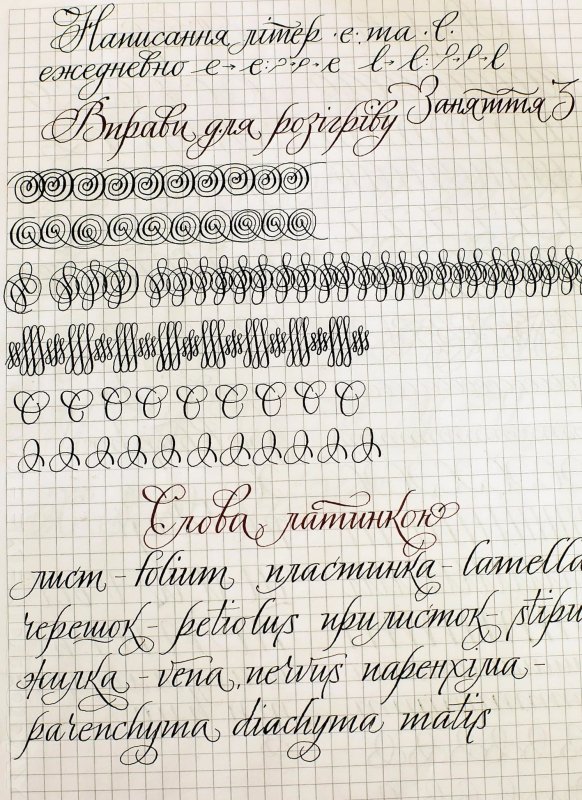 Написання літер ·е· та ·l·
ежедневно е → е: е l → l: l
Вправи для розігріву Заняття 3
Слова латинкою
лист – folium пластинка – lamella
черешок – petiolus прилисток – stipu
жилка – vena, nervus паренхіма –
parenchyma diachyma matis